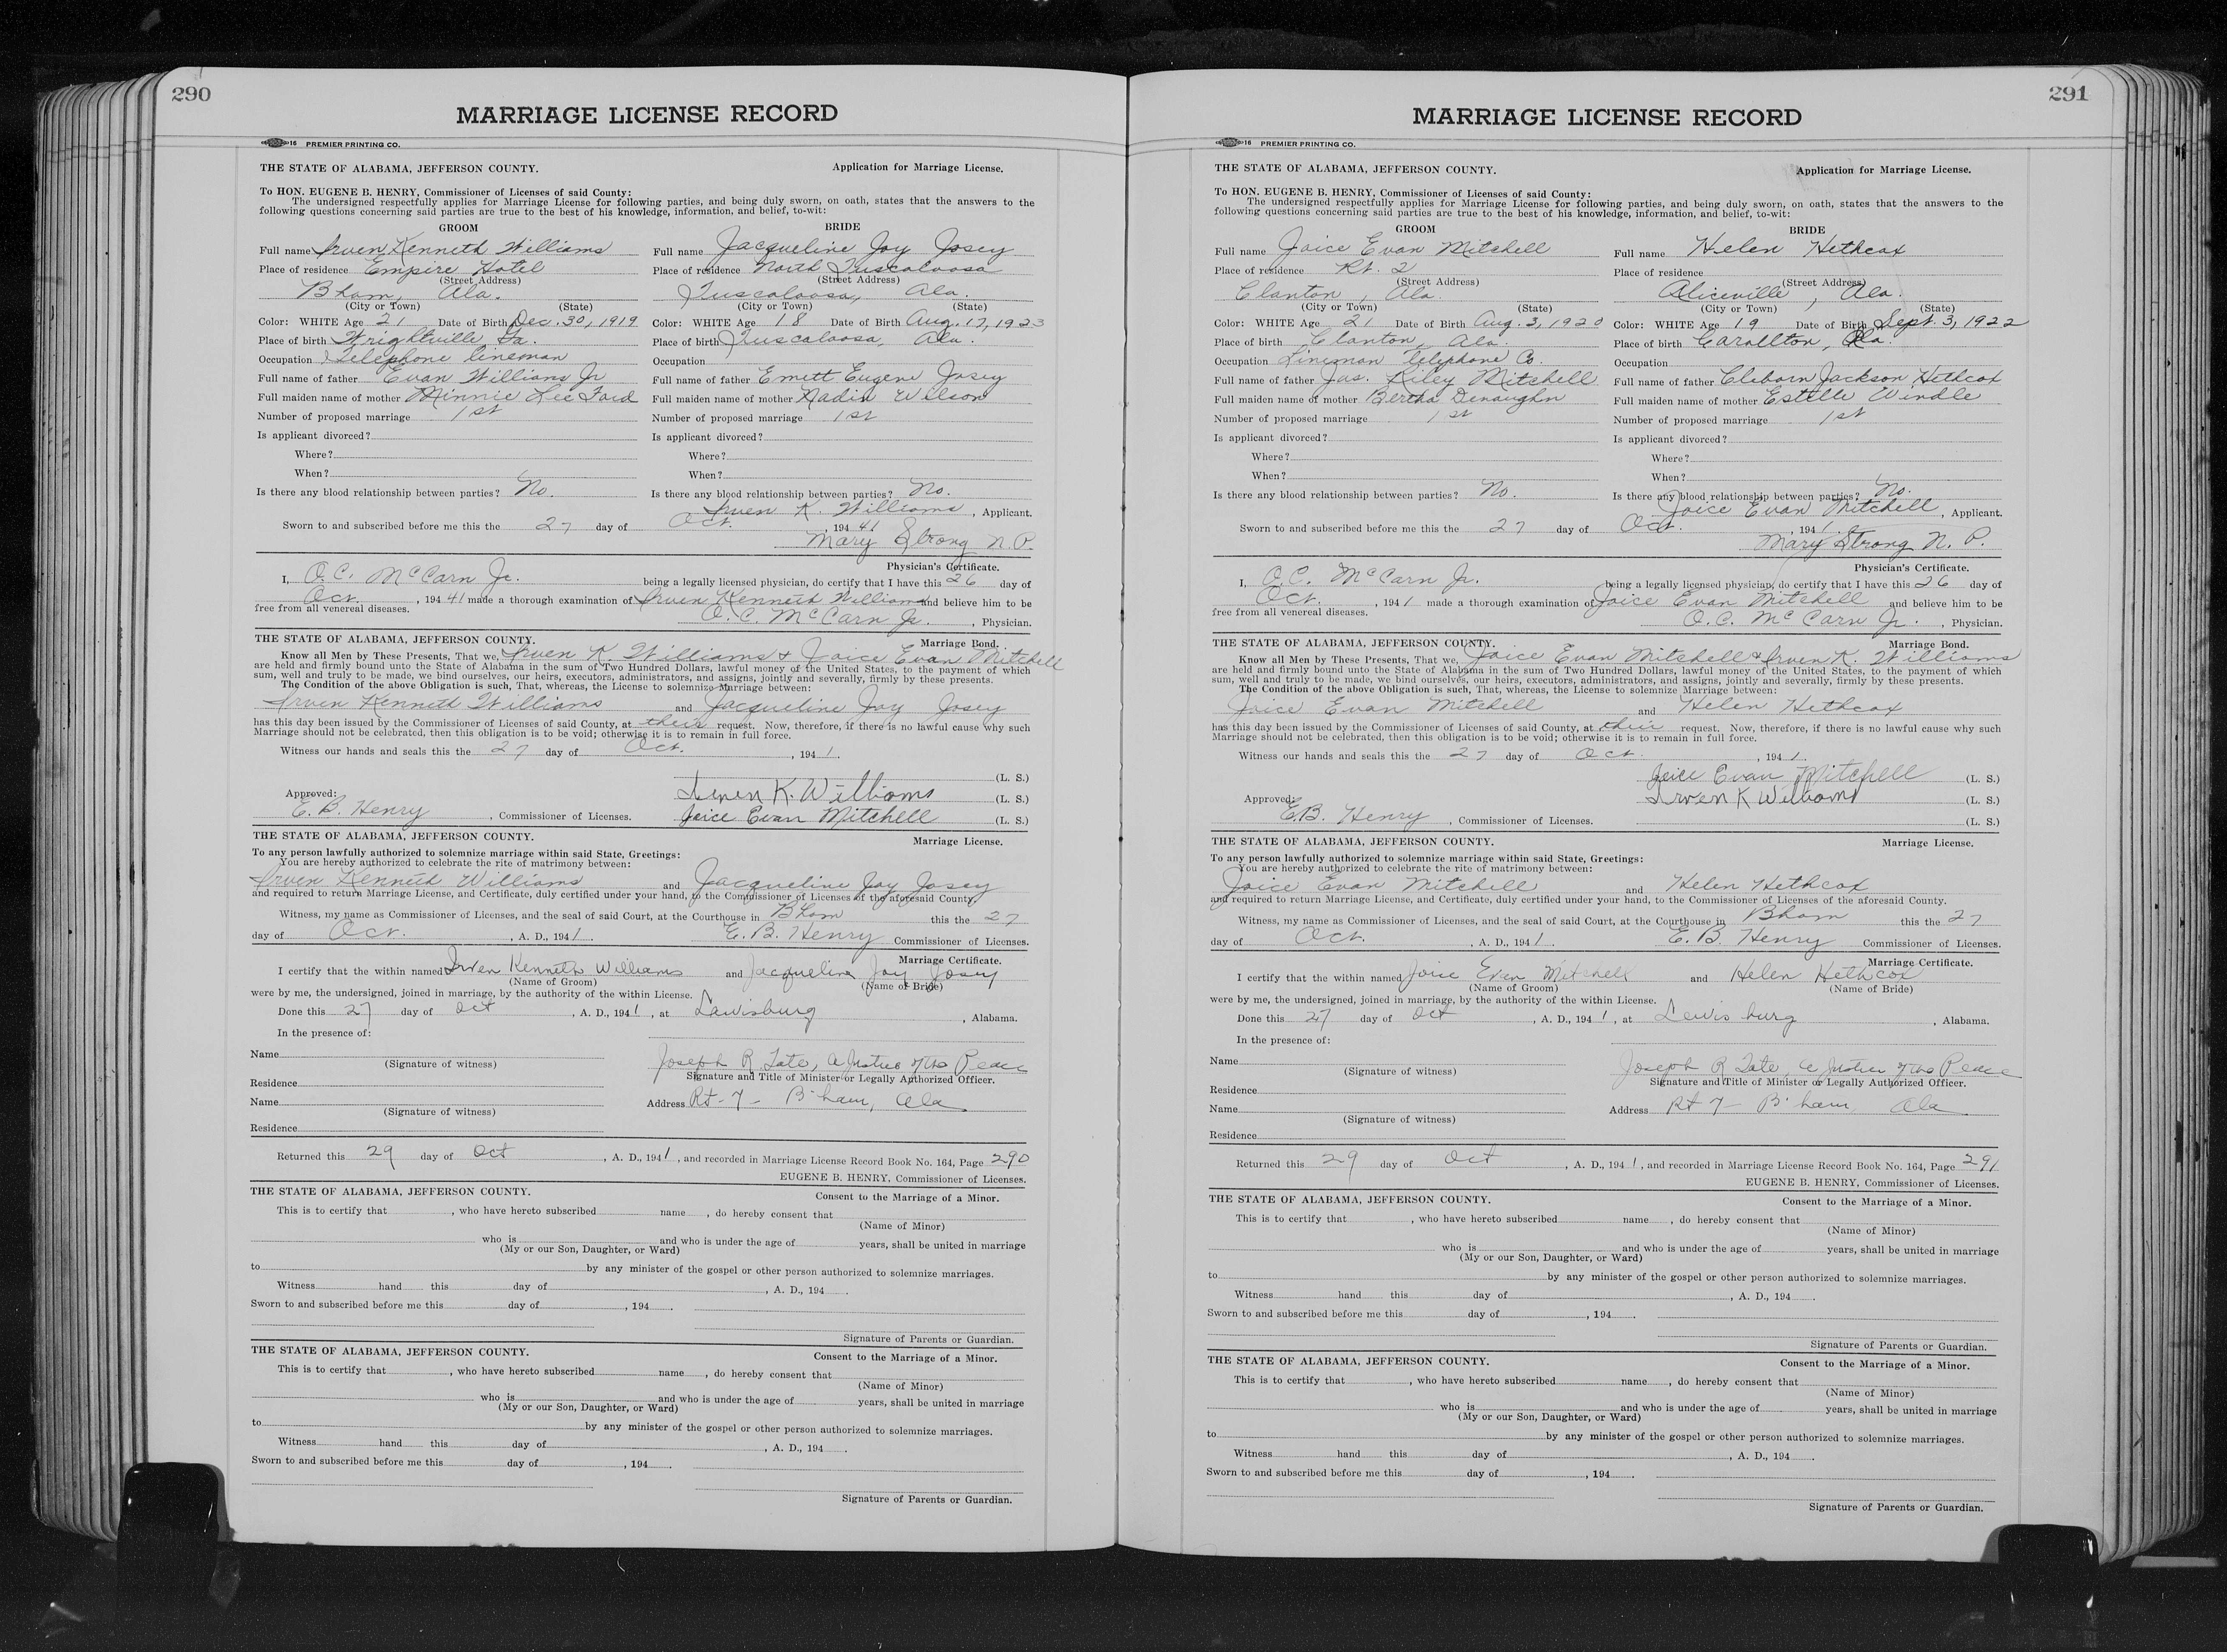 290
MARRIAGE LICENSE RECORD
16 PREMIER PRINTING CO.
THE STATE OF ALABAMA, JEFFERSON COUNTY. Application for Marriage License.
To HON. EUGENE B. HENRY, Commissioner of Licenses of said County:
The undersigned respectfully applies for Marriage License for following parties, and being duly sworn, on oath, states that the answers to the
following questions concerning said parties are true to the best of his knowledge, information, and belief, to-wit:
GROOM BRIDE
Full name Irven Kenneth Williams Full name Jacqueline Joy Josey
Place of residence Empire Hotel Place of residence North Tuscaloosa
(Street Address) (Street Address)
Bham, Ala. Tuscaloosa, Ala.
(City or Town) (State) (City or Town) (State)
Color: WHITE Age 21 Date of Birth Dec. 30, 1919 Color: WHITE Age 18 Date of Birth Aug. 17, 1923
Place of birth Wrightville Ga. Place of birth Tuscaloosa, Ala.
Occupation Telephone lineman Occupation
Full name of father Evan Williams Jr Full name of father Emett Eugene Josey
Full maiden name of mother Minnie Lee Ford Full maiden name of mother Nadie Wilson
Number of proposed marriage 1st Number of proposed marriage 1st
Is applicant divorced? Is applicant divorced?
Where? Where?
When? When?
Is there any blood relationship between parties? No. Is there any blood relationship between parties? No.
Irven K. Williams, Applicant.
Sworn to and subscribed before me this the 27 day of Oct. , 194 41
Mary Strong N.P.
Physician's Certificate.
I, O.C. McCarn Jr. being a legally licensed physician, do certify that I have this 26 day of
Oct. , 194 41 made a thorough examination of Irven Kenneth Williams and believe him to be
free from all venereal diseases. O. C. McCarn Jr. , Physician.
THE STATE OF ALABAMA, JEFFERSON COUNTY. Marriage Bond.
Know all Men by These Presents, That we, Irven K. Williams & Joice Evan Mitchell
are held and firmly bound unto the State of Alabama in the sum of Two Hundred Dollars, lawful money of the United States, to the payment of which
sum, well and truly to be made, we bind ourselves, our heirs, executors, administrators, and assigns, jointly and severally, firmly by these presents.
The Condition of the above Obligation is such, That, whereas, the License to solemnize Marriage between:
Irven Kenneth Williams and Jacqueline Joy Josey
has this day been issued by the Commissioner of Licenses of said County, at their request. Now, therefore, if there is no lawful cause why such
Marriage should not be celebrated, then this obligation is to be void; otherwise it is to remain in full force.
Witness our hands and seals this the 27 day of Oct. , 194 1.
(L. S.)
Approved: Irven K. Williams (L. S.)
E. B. Henry , Commissioner of Licenses. Joice Evan Mitchell (L. S.)
THE STATE OF ALABAMA, JEFFERSON COUNTY. Marriage License.
To any person lawfully authorized to solemnize marriage within said State, Greetings:
You are hereby authorized to celebrate the rite of matrimony between:
Irven Kenneth Williams and Jacqueline Joy Josey
and required to return Marriage License, and Certificate, duly certified under your hand, to the Commissioner of Licenses of the aforesaid County.
Witness, my name as Commissioner of Licenses, and the seal of said Court, at the Courthouse in Bham this the 27
day of Oct. , A. D., 194 1. E. B. Henry Commissioner of Licenses.
Marriage Certificate.
I certify that the within named Irven Kenneth Williams and Jacqueline Joy Josey
(Name of Groom) (Name of Bride)
were by me, the undersigned, joined in marriage, by the authority of the within License.
Done this 27 day of Oct , A. D., 194 1 , at Lewisburg , Alabama.
In the presence of:
Name Joseph R. Tate, a Justice of the Peace
(Signature of witness) Signature and Title of Minister or Legally Authorized Officer.
Residence
Name Address Rt-7- B'ham, Ala
(Signature of witness)
Residence
Returned this 29 day of Oct , A. D., 194 1 , and recorded in Marriage License Record Book No. 164, Page 290
EUGENE B. HENRY, Commissioner of Licenses.
THE STATE OF ALABAMA, JEFFERSON COUNTY. Consent to the Marriage of a Minor.
This is to certify that , who have hereto subscribed name , do hereby consent that
(Name of Minor)
who is and who is under the age of years, shall be united in marriage
(My or our Son, Daughter, or Ward)
to by any minister of the gospel or other person authorized to solemnize marriages.
Witness hand this day of , A. D., 194 .
Sworn to and subscribed before me this day of , 194 .
Signature of Parents or Guardian.
THE STATE OF ALABAMA, JEFFERSON COUNTY. Consent to the Marriage of a Minor.
This is to certify that , who have hereto subscribed name , do hereby consent that
(Name of Minor)
who is and who is under the age of years, shall be united in marriage
(My or our Son, Daughter, or Ward)
to by any minister of the gospel or other person authorized to solemnize marriages.
Witness hand this day of , A. D., 194 .
Sworn to and subscribed before me this day of , 194 .
Signature of Parents or Guardian.
291
MARRIAGE LICENSE RECORD
16 PREMIER PRINTING CO.
THE STATE OF ALABAMA, JEFFERSON COUNTY. Application for Marriage License.
To HON. EUGENE B. HENRY, Commissioner of Licenses of said County:
The undersigned respectfully applies for Marriage License for following parties, and being duly sworn, on oath, states that the answers to the
following questions concerning said parties are true to the best of his knowledge, information, and belief, to-wit:
GROOM BRIDE
Full name Joice Evan Mitchell Full name Helen Hethcox
Place of residence Rt. 2 Place of residence
(Street Address) (Street Address)
Clanton, Ala. Aliceville, Ala.
(City or Town) (State) (City or Town) (State)
Color: WHITE Age 21 Date of Birth Aug. 3, 1920 Color: WHITE Age 19 Date of Birth Sept. 3, 1922
Place of birth Clanton, Ala. Place of birth Carollton, Ala.
Occupation Lineman Telephone Co. Occupation
Full name of father Jas. Riley Mitchell Full name of father Cleborn Jackson Hethcox
Full maiden name of mother Bertha Denaughn Full maiden name of mother Estelle Windle
Number of proposed marriage 1st Number of proposed marriage 1st
Is applicant divorced? Is applicant divorced?
Where? Where?
When? When?
Is there any blood relationship between parties? No. Is there any blood relationship between parties? No.
Joice Evan Mitchell, Applicant.
Sworn to and subscribed before me this the 27 day of Oct. , 194 1.
Mary Strong N. P.
Physician's Certificate.
I, O.C. McCarn Jr. being a legally licensed physician, do certify that I have this 26 day of
Oct. , 194 1 made a thorough examination of Joice Evan Mitchell and believe him to be
free from all venereal diseases. O.C. McCarn Jr. , Physician.
THE STATE OF ALABAMA, JEFFERSON COUNTY. Marriage Bond.
Know all Men by These Presents, That we, Joice Evan Mitchell & Irven K. Williams
are held and firmly bound unto the State of Alabama in the sum of Two Hundred Dollars, lawful money of the United States, to the payment of which
sum, well and truly to be made, we bind ourselves, our heirs, executors, administrators, and assigns, jointly and severally, firmly by these presents.
The Condition of the above Obligation is such, That, whereas, the License to solemnize Marriage between:
Joice Evan Mitchell and Helen Hethcox
has this day been issued by the Commissioner of Licenses of said County, at their request. Now, therefore, if there is no lawful cause why such
Marriage should not be celebrated, then this obligation is to be void; otherwise it is to remain in full force.
Witness our hands and seals this the 27 day of Oct. , 194 1.
Joice Evan Mitchell (L. S.)
Approved: Irven K Williams (L. S.)
E.B. Henry , Commissioner of Licenses. (L. S.)
THE STATE OF ALABAMA, JEFFERSON COUNTY. Marriage License.
To any person lawfully authorized to solemnize marriage within said State, Greetings:
You are hereby authorized to celebrate the rite of matrimony between:
Joice Evan Mitchell and Helen Hethcox
and required to return Marriage License, and Certificate, duly certified under your hand, to the Commissioner of Licenses of the aforesaid County.
Witness, my name as Commissioner of Licenses, and the seal of said Court, at the Courthouse in Bham this the 27
day of Oct. , A. D., 194 1. E. B. Henry Commissioner of Licenses.
Marriage Certificate.
I certify that the within named Joice Evan Mitchell and Helen Hethcox
(Name of Groom) (Name of Bride)
were by me, the undersigned, joined in marriage, by the authority of the within License.
Done this 27 day of Oct , A. D., 194 1 , at Lewisburg , Alabama.
In the presence of:
Name Joseph R Tate, a Justice of the Peace
(Signature of witness) Signature and Title of Minister or Legally Authorized Officer.
Residence
Name Address Rt 7- B'ham, Ala
(Signature of witness)
Residence
Returned this 29 day of Oct , A. D., 194 1 , and recorded in Marriage License Record Book No. 164, Page 291
EUGENE B. HENRY, Commissioner of Licenses.
THE STATE OF ALABAMA, JEFFERSON COUNTY. Consent to the Marriage of a Minor.
This is to certify that , who have hereto subscribed name , do hereby consent that
(Name of Minor)
who is and who is under the age of years, shall be united in marriage
(My or our Son, Daughter, or Ward)
to by any minister of the gospel or other person authorized to solemnize marriages.
Witness hand this day of , A. D., 194 .
Sworn to and subscribed before me this day of , 194 .
Signature of Parents or Guardian.
THE STATE OF ALABAMA, JEFFERSON COUNTY. Consent to the Marriage of a Minor.
This is to certify that , who have hereto subscribed name , do hereby consent that
(Name of Minor)
who is and who is under the age of years, shall be united in marriage
(My or our Son, Daughter, or Ward)
to by any minister of the gospel or other person authorized to solemnize marriages.
Witness hand this day of , A. D., 194 .
Sworn to and subscribed before me this day of , 194 .
Signature of Parents or Guardian.